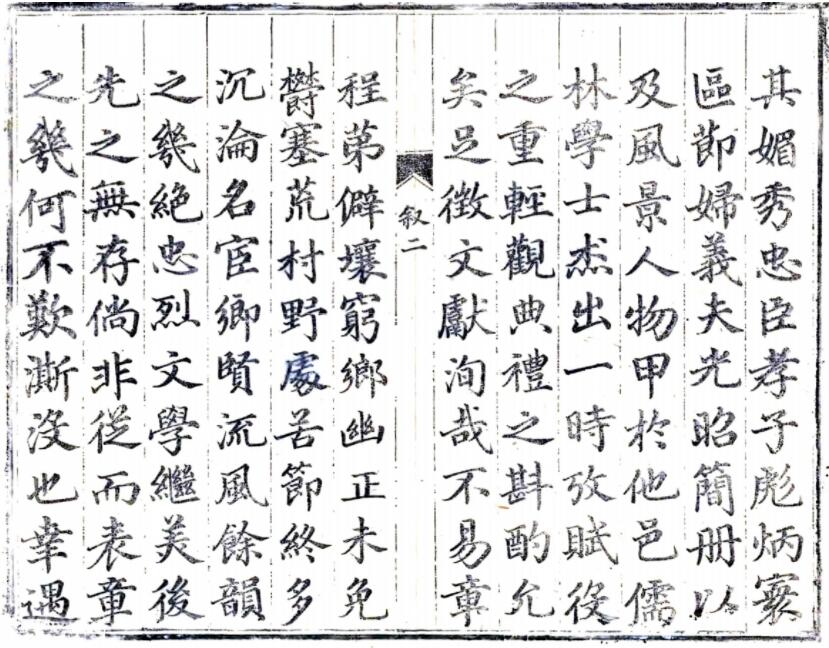 其媚秀忠臣孝子彪炳寰
區節婦義夫光昭簡册以
及風景人物甲於他邑儒
林學士杰出一時攷賦役
之重輕觀典禮之斟酌允
矣足徵文獻洵哉不易章
叙二
程苐僻壤窮鄉幽正未免
欎塞荒村野處苦節終多
沉淪名宦鄉賢流風餘韻
之幾絶忠烈文學繼美後
先之無存倘非從而表章
之幾何不歎澌沒也幸遇